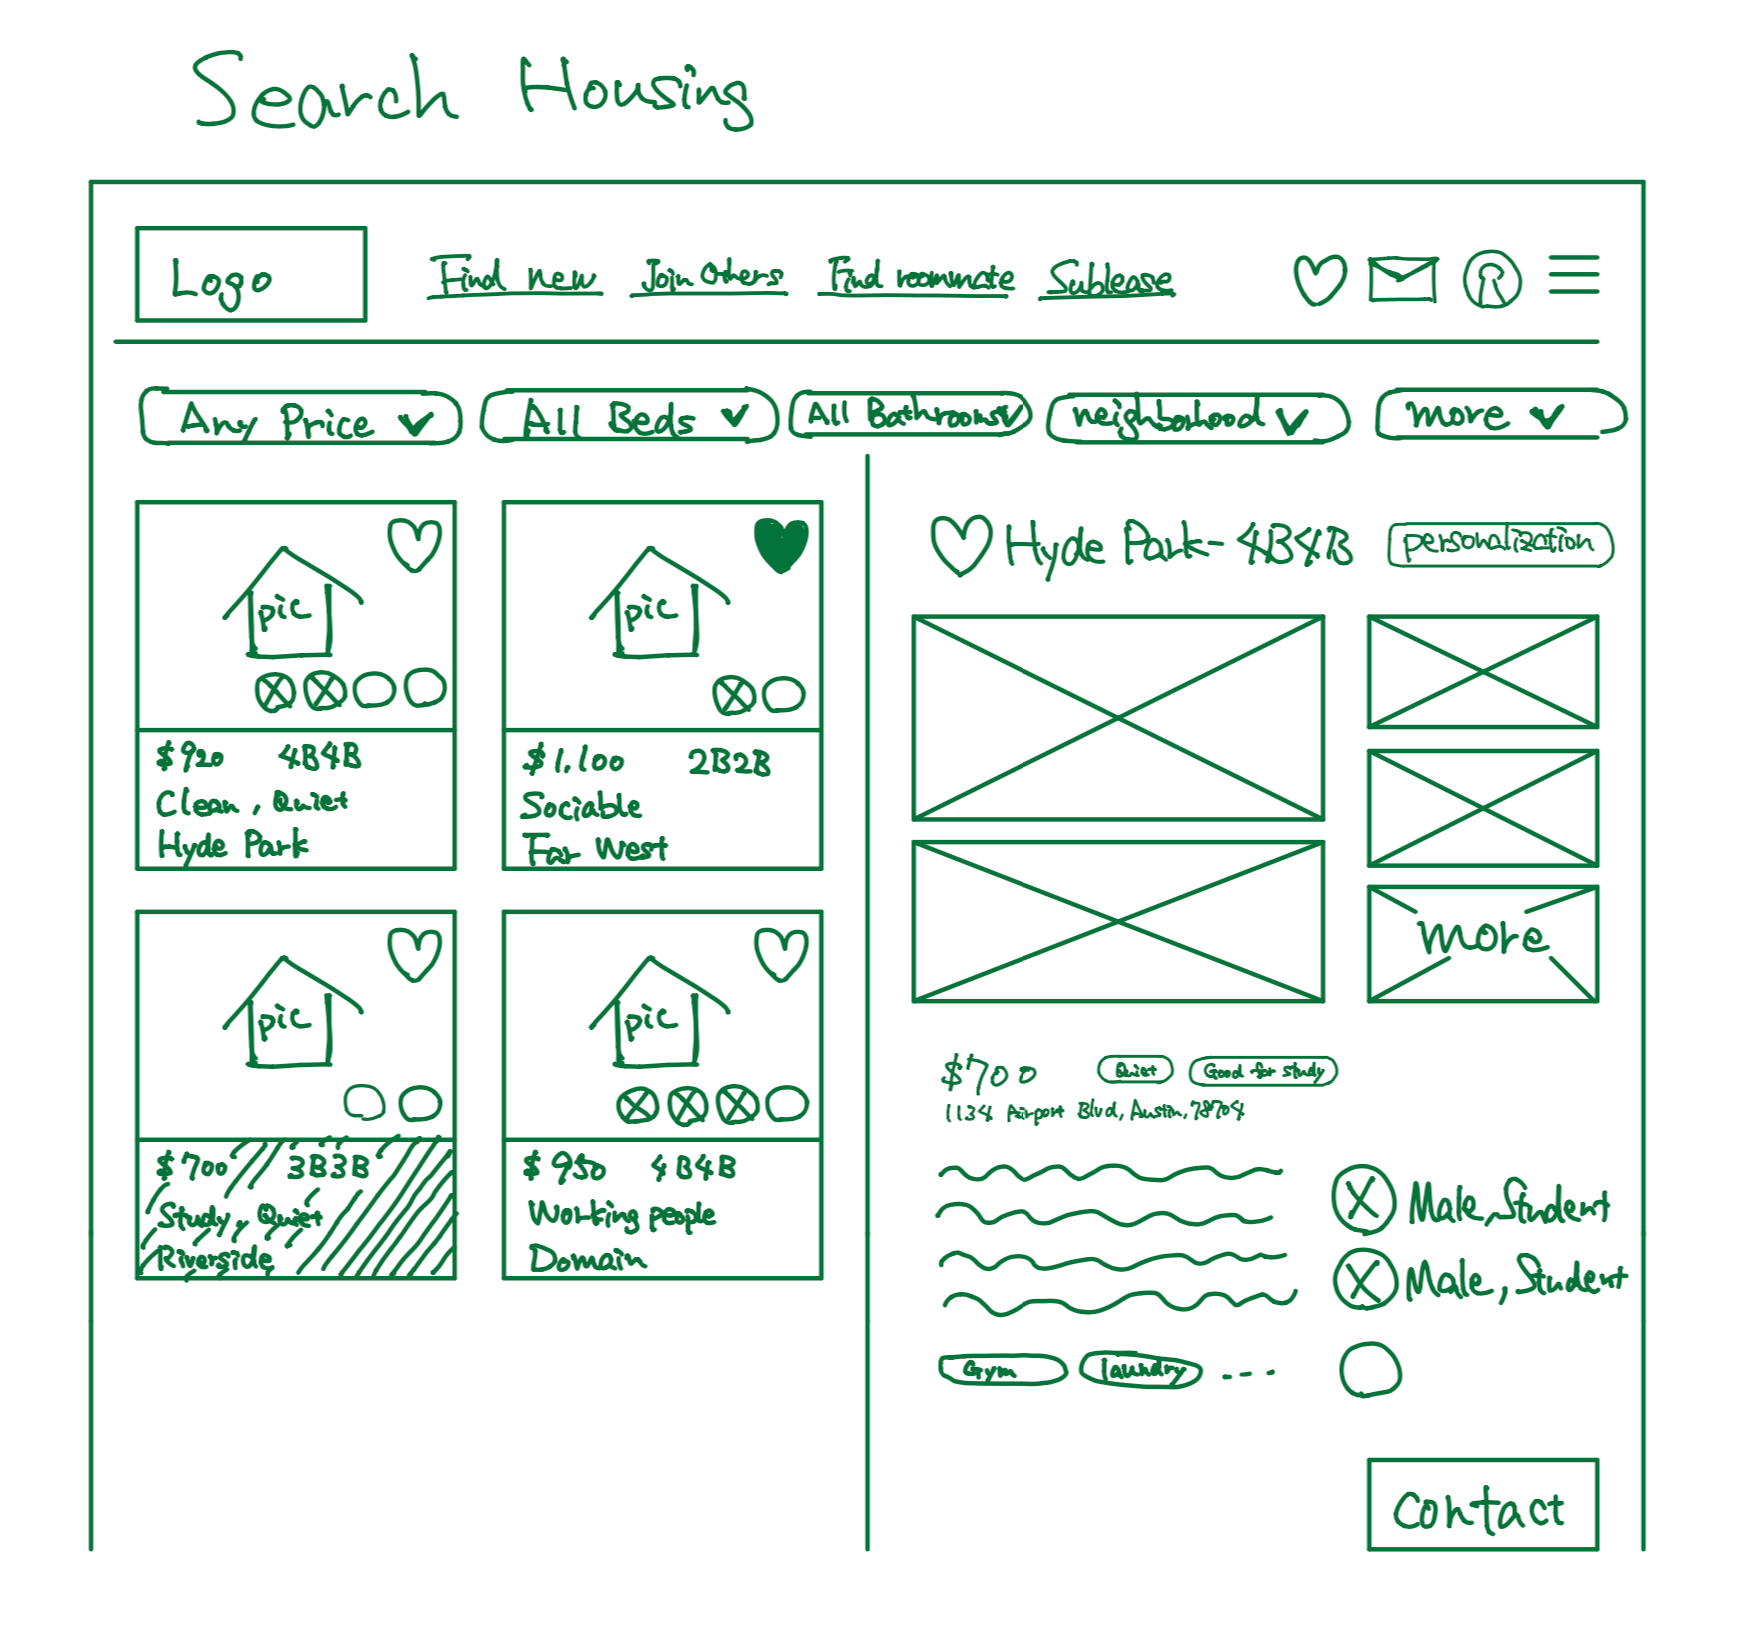 Search Housing
Logo
Find new
Join Others
Find roommate
Sublease
Any Price
All Beds
All Bathrooms
neighborhood
more
pic
$920 4B4B
Clean, Quiet
Hyde Park
pic
$1,100 2B2B
Sociable
Far West
pic
$700 3B3B
Study, Quiet
Riverside
pic
$950 4B4B
Working people
Domain
Hyde Park- 4B4B
personalization
more
$700
Quiet
Good for study
1134 Airport Blvd, Austin, 78704
Male, Student
Male, Student
Gym
laundry
Contact